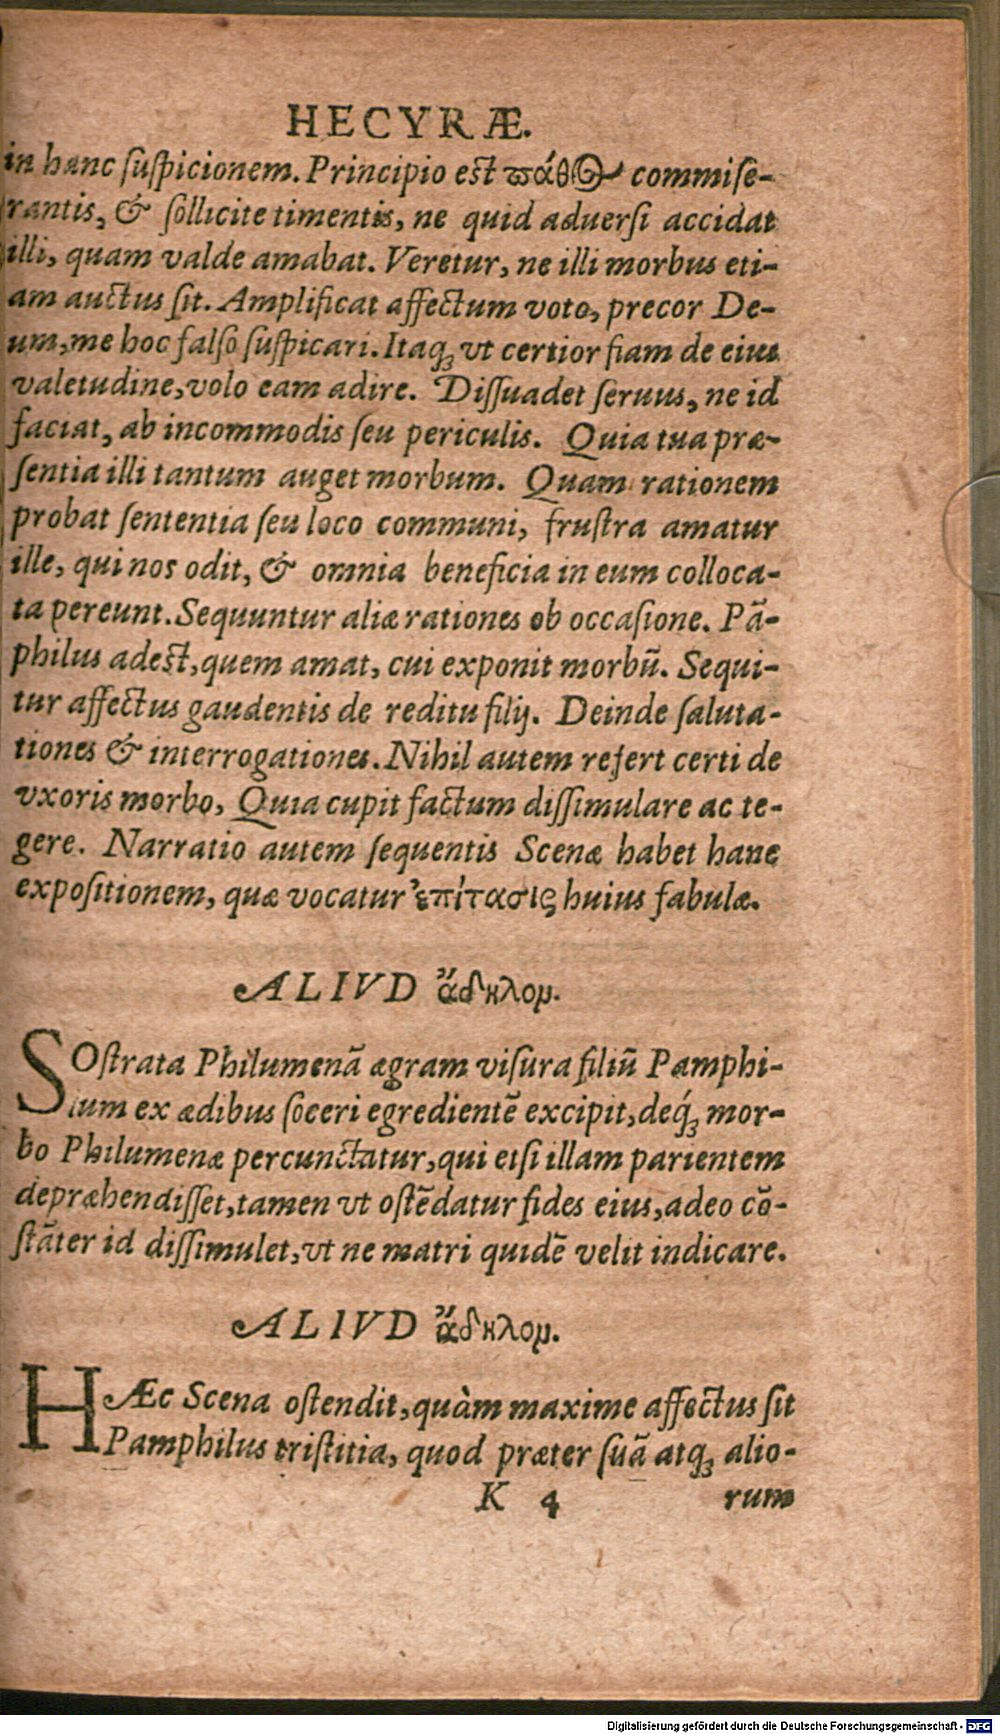 HECYRÆ.
in hanc ſuſpicionem. Principio est πάθος commiſe-
rantis, & ſollicite timentis, ne quid aduerſi accidat
illi, quam valde amabat. Veretur, ne illi morbus eti-
am auctus ſit. Amplificat affectum voto, precor De-
um, me hoc falſo ſuſpicari. Itaqꝫ vt certior fiam de eius
valetudine, volo eam adire. Diſſuadet ſeruus, ne id
faciat, ab incommodis ſeu periculis. Quia tua præ-
ſentia illi tantum auget morbum. Quam rationem
probat ſententia ſeu loco communi, fruſtra amatur
ille, qui nos odit, & omnia beneficia in eum colloca-
ta pereunt. Sequuntur aliæ rationes ob occaſione. Pã-
philus adest, quem amat, cui exponit morbũ. Sequi-
tur affectus gaudentis de reditu filij. Deinde ſaluta-
tiones & interrogationes. Nihil autem refert certi de
vxoris morbo, Quia cupit factum diſſimulare ac te-
gere. Narratio autem ſequentis Scenæ habet hanc
expoſitionem, quæ vocatur ἐπίτασις huius fabulæ.
ALIVD ἄδηλομ.
SOſtrata Philumenã ægram viſura filiũ Pamphi-
lum ex ædibus ſoceri egredientẽ excipit, deqꝫ́ mor-
bo Philumenæ percunctatur, qui etſi illam parientem
depræhendiſſet, tamen vt oſtẽdatur fides eius, adeo cõ-
ſtãter id diſſimulet, vt ne matri quidẽ velit indicare.
ALIVD ἄδηλομ.
HÆc Scena oſtendit, quàm maxime affectus ſit
Pamphilus triſtitia, quod præter ſuã atqꝫ alio-
K 4 rum
Digitalisierung gefördert durch die Deutsche Forschungsgemeinschaft - DFG